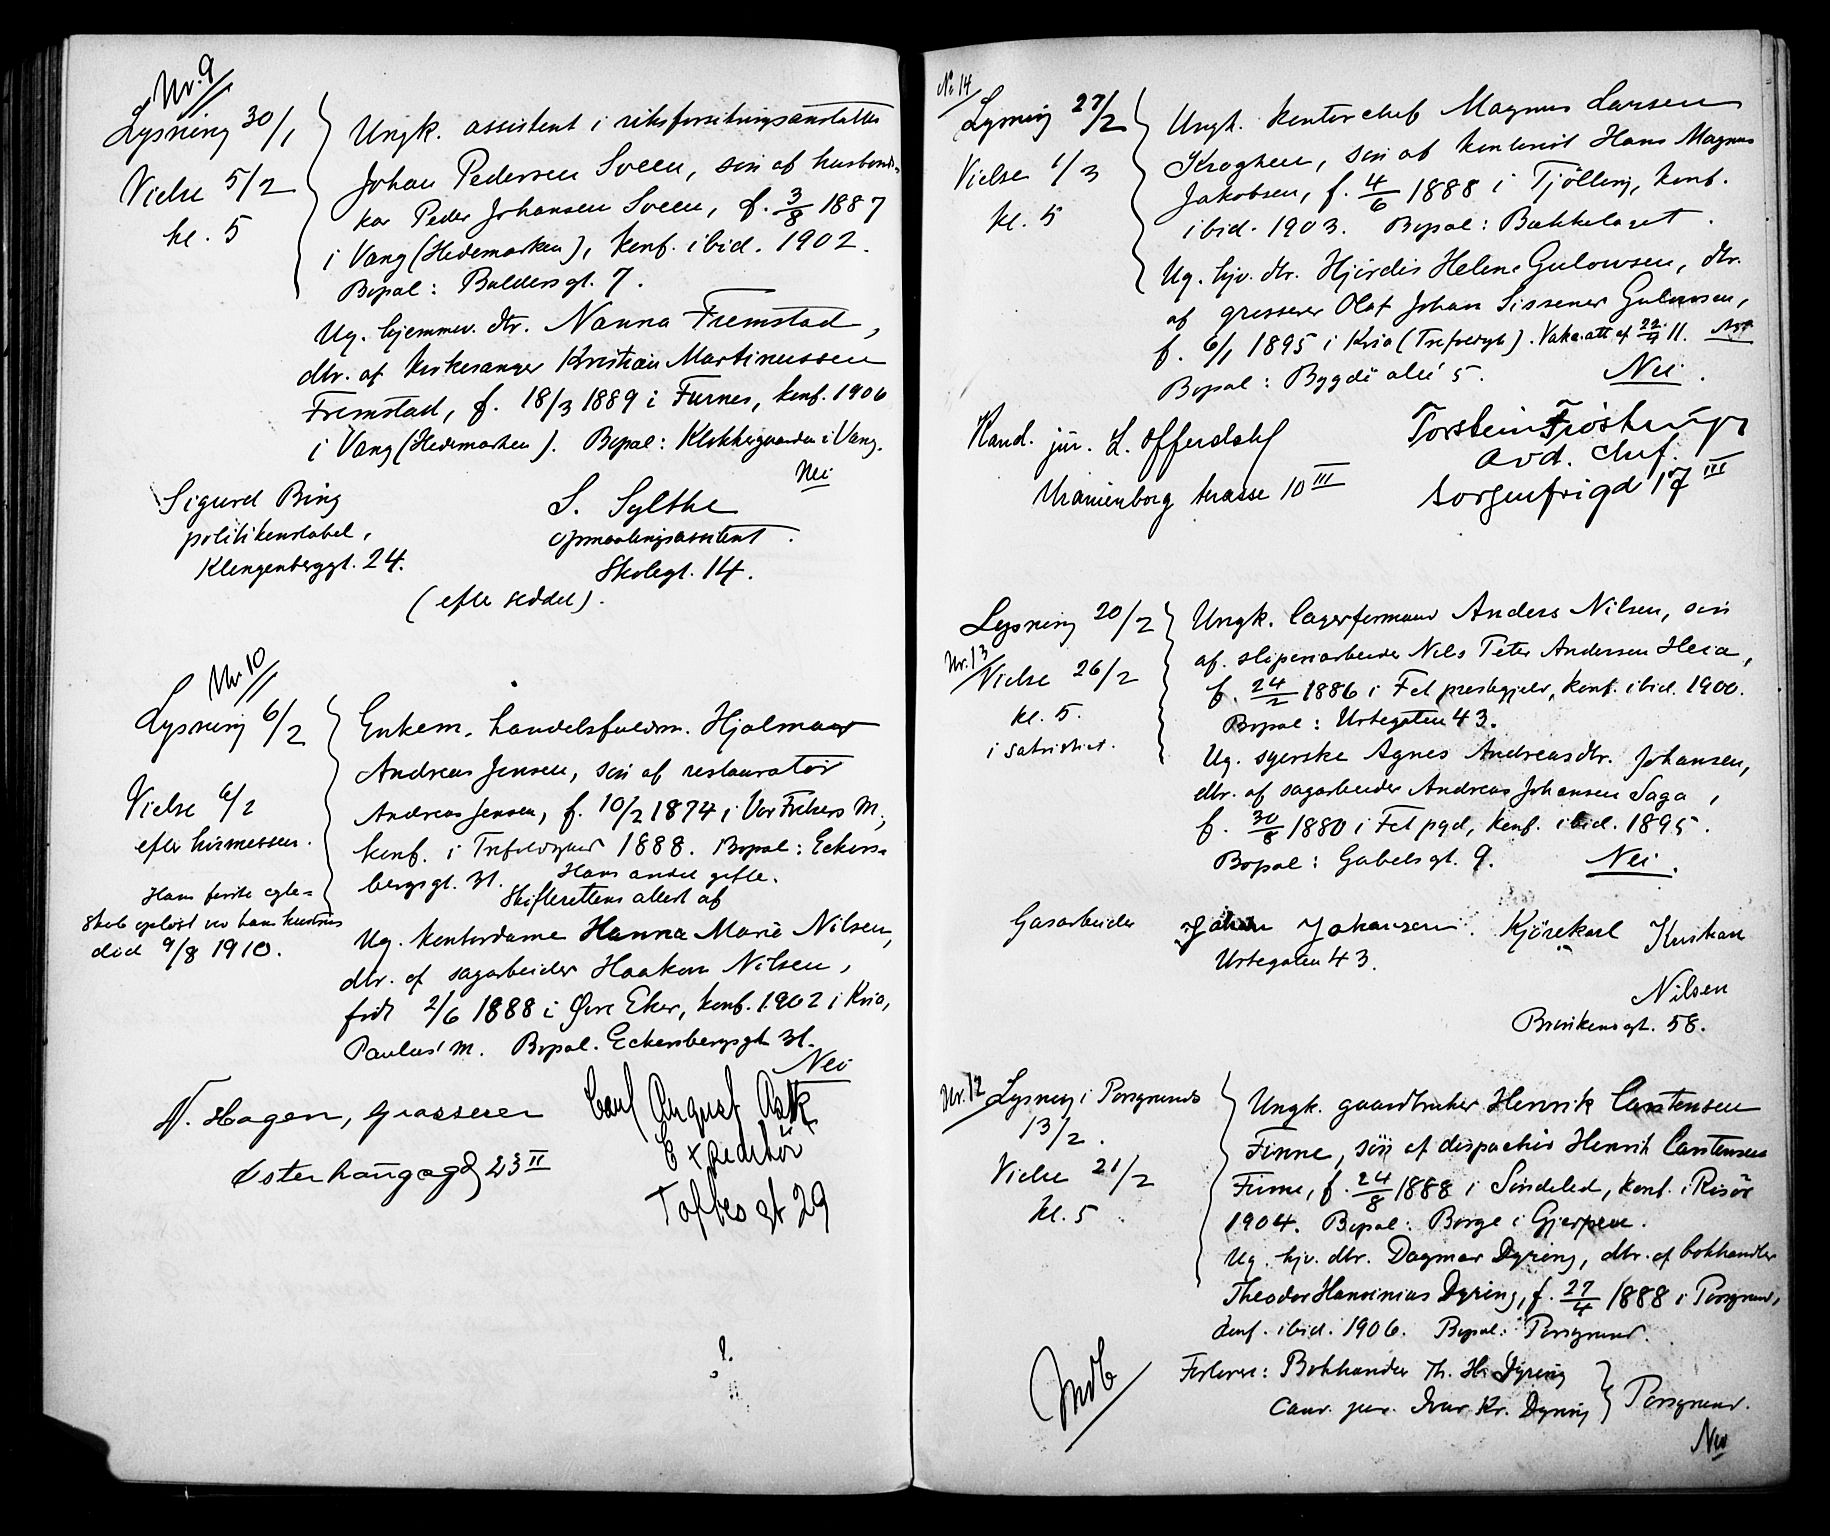 Nr. 9
Lysning 30/1
Vielse 5/2
kl. 5
Ungk. assistent i riksforsikringsanstalten
Johan Pedersen Sveen, søn af husbond-
kar Peder Johansen Sveen, f. 3/8 1887
i Vang (Hedemarken), konf. ibid. 1902.
Bopæl: Baldersgt. 7.
Ug. hjemmev. dtr. Nanna Fremstad,
dtr. af kirkesanger Kristian Martinussen
Fremstad, f. 18/3 1889 i Furnes, konf. 1906
i Vang (Hedemarken). Bopæl: Klokkergaarden i Vang.
Nei
Sigurd Bing
politikonstabel,
Klingenberggt. 24.
S. Sylthe
opmaalingsassistent.
Skolegt. 14.
(efter seddel).
Nr. 10
Lysning 6/2
Vielse 6/2
efter høimessen.
Hans første egte-
skab opløst ved hans hustrus
død 9/8 1910.
Enkem. handelsfuldm. Hjalmar
Andreas Jensen, søn af restauratør
Andreas Jensen, f. 10/2 1874 i Vor Frelsers M.,
konf. i Trefoldighed 1888. Bopæl: Eckers-
bergsgt. 31. Hans andet gifte.
Skifterettens attest af
Ug. kontordame Hanna Marie Nilsen,
dtr. af sagarbeider Haakon Nilsen,
født 2/6 1888 i Øvre Eker, konf. 1902 i Kria,
Paulus' M. Bopæl. Eckersbergsgt 31.
Nei
N. Hagen, Grosserer
Østerhaugsgd 23 II
Carl August Ask
Expeditør
Toftes gt 29
No 14
Lysning 27/2
Vielse 1/3
kl. 5
Ungk. kontorchef Magnus Larsen
Kroghen, søn af kontorist Hans Magnus
Jakobsen, f. 4/6 1888 i Tjølling, konf.
ibid. 1903. Bopæl: Bækkelaget.
Ug. hjv. dtr. Hjørdis Helene Gulowsen, dtr.
af grosserer Olaf Johan Sissener Gulowsen,
f. 6/1 1895 i Kria (Trefoldigh). Vakc.att af 22/9 11.
Bopæl: Bygdø allé 5. Nei.
Kand. jur. L. Offerdahl
Uranienborg terasse 10 III
Torstein Frøstrup
avd. chef.
Sorgenfrigd 17 III
Lysning 20/2
Nr. 13
Vielse 26/2
kl. 5.
i sakristiet.
Ungk. lagerformand Anders Nilsen, søn
af sliperiarbeider Nils Peter Andersen Heia,
f. 24/2 1886 i Fet prestegjeld, konf. ibid. 1900.
Bopæl: Urtegaten 43.
Ug. syerske Agnes Andreasdtr. Johansen,
dtr. af sagarbeider Andreas Johansen Saga,
f. 30/8 1880 i Fet pgd, konf. ibid. 1895.
Bopæl: Gabelsgt. 9. Nei.
Gasarbeider Johan Johansen. Kjørekarl Kristian
Urtegaten 43.
Nilsen
Brinkensgt. 58.
Nr. 12 Lysning i Porsgrund
13/2.
Vielse 21/2
kl. 5
Ungk. gaardbruker Henrik Carstensen
Finne, søn af dispachør Henrik Carstensen
Finne, f. 24/8 1888 i Søndeled, konf. i Risør
1904. Bopæl: Borge i Gjerpen.
Ug. hjv. dtr. Dagmar Dyring, dtr. af bokhandler
Theodor Hansinius Dyring, f. 27/4 1888 i Porsgrund,
konf. ibid. 1906. Bopæl: Porsgrund.
Forlovere: Bokhandler Th. H. Dyring
Cand. jur. Ivar Kr. Dyring } Porsgrund.
Indb
Nei